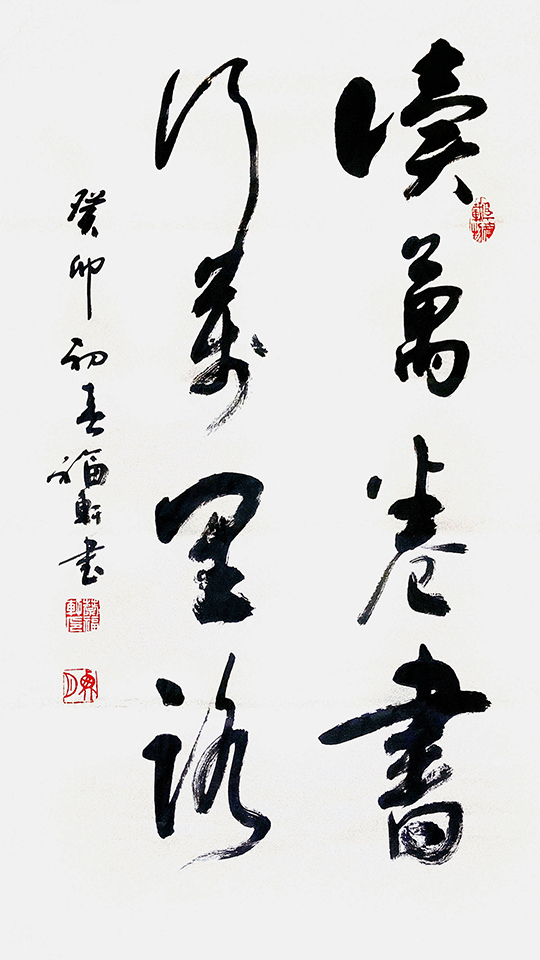 讀萬卷書
行萬里路
癸卯初春福軒書